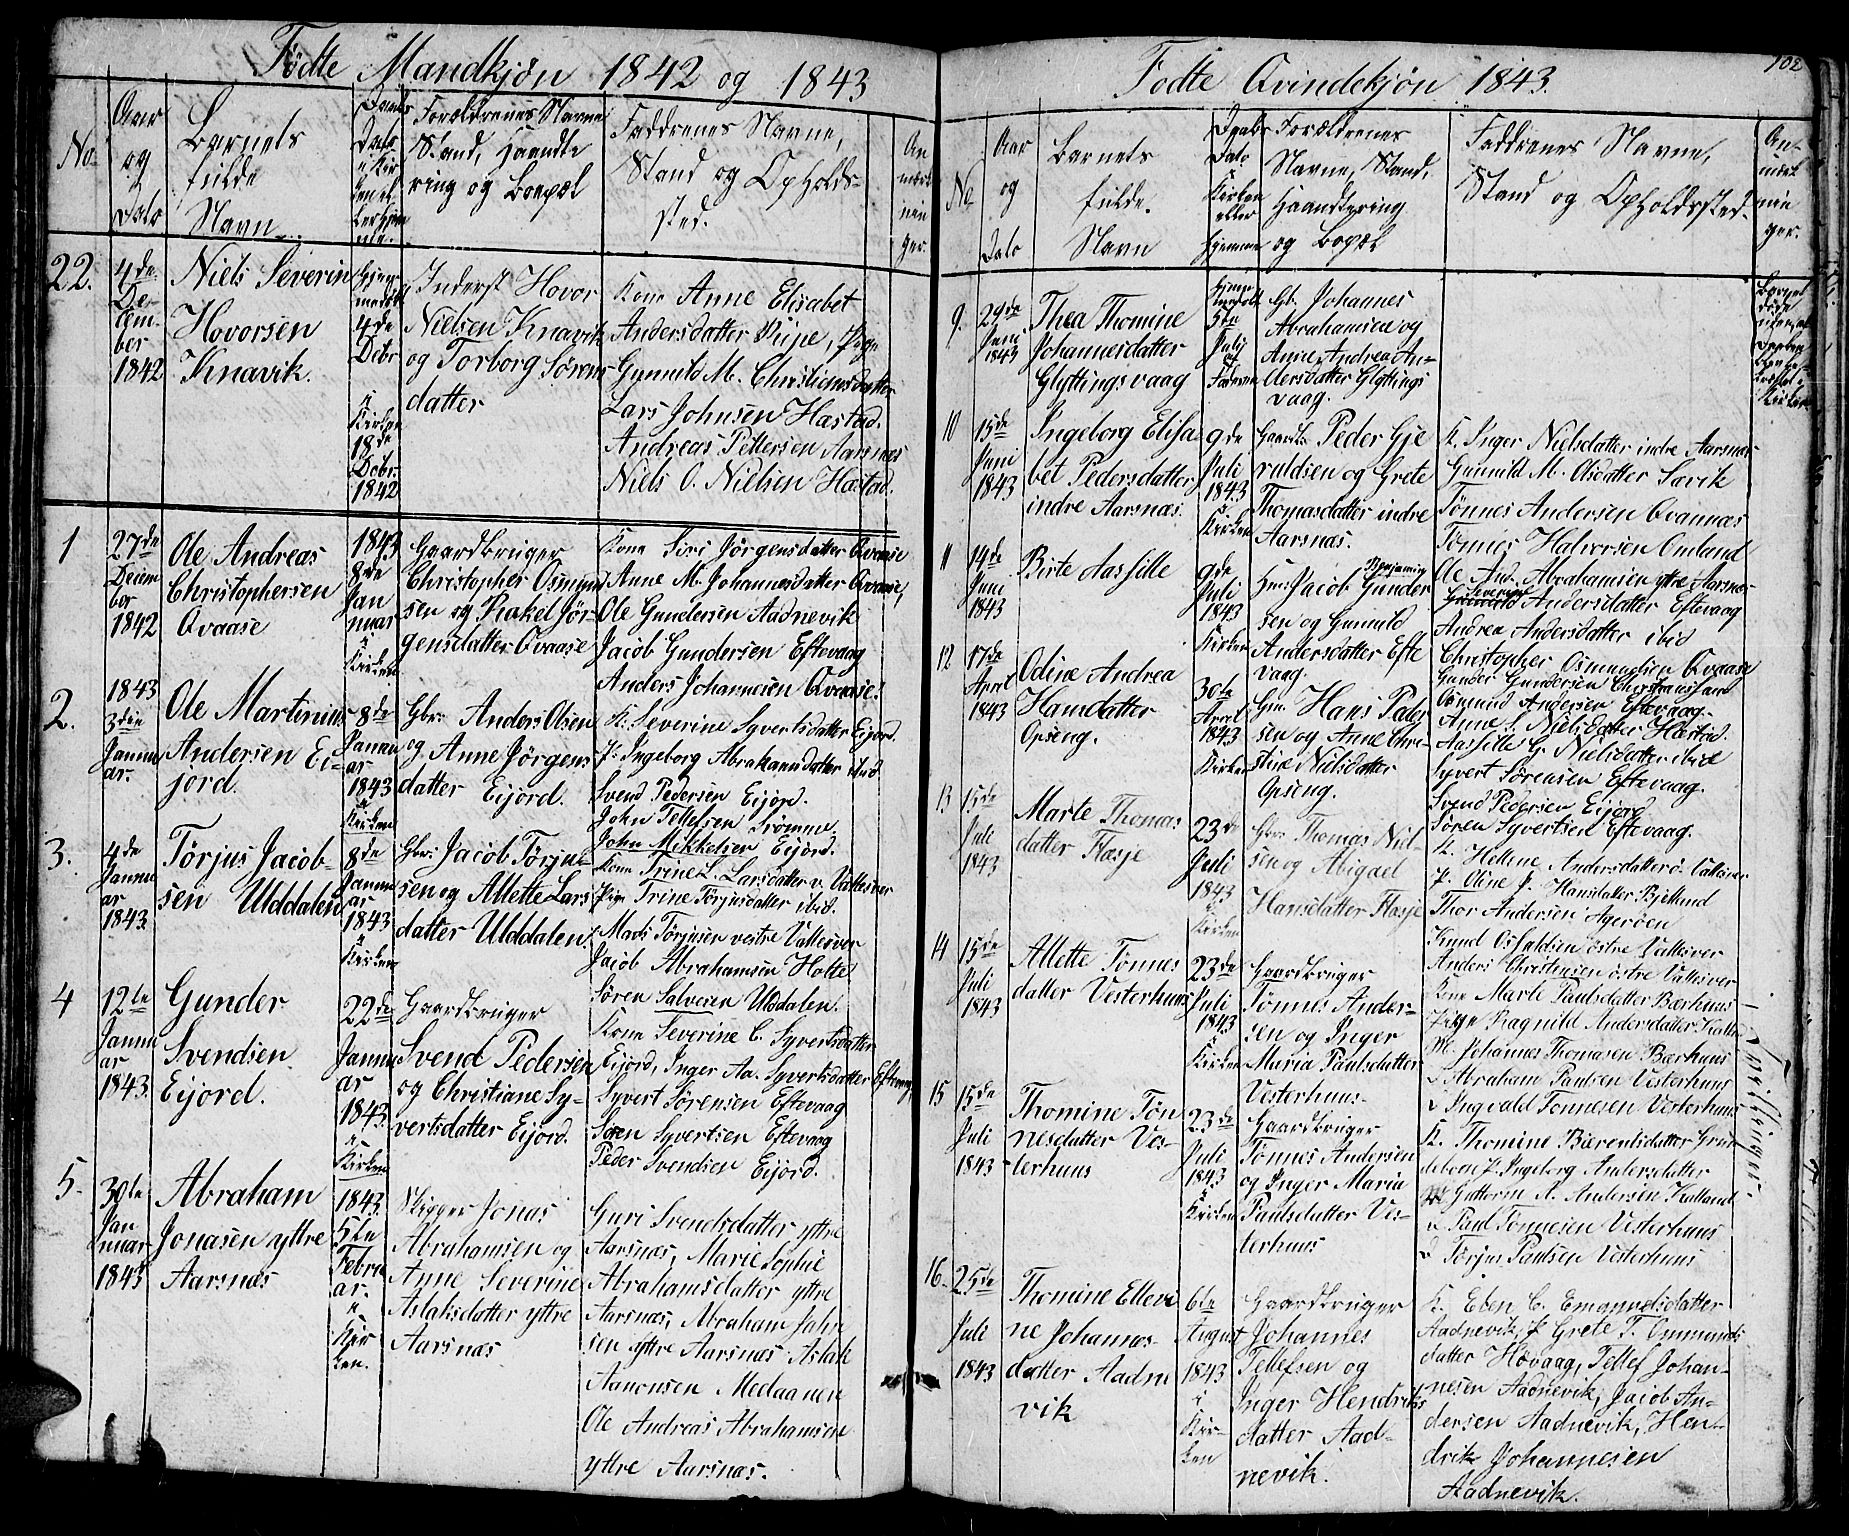 Fødte Mandkjøn 1842 og 1843
No.
Aar
og
Dato
Barnets
fulde
Navn
Daabs
Dato
i Kir
ken el
ler hjem
me.
Forældrenes Navne
Stand, Haandte
ring og Boepæl
Faddrenes Navne,
Stand og Opholds-
sted.
An
mærk
nin
ger.
22.
4de
De-
cem-
ber
1842
Niels Severin
Hovorsen
Knavik.
Hjem
medøbt
4de
Decbr
i
Kirken
18de
Decbr.
1842
Inderst Hovor
Nielsen Knavik
og Torborg Sørens
datter
Kone Anne Elisabet
Andersdatter Piipe, Pige
Gunnild M. Christiansdatter
Lars Johnsen Hæstad.
Andreas Pettersen Aarsnæs
Niels O. Nielsen Hæstad.
1
27de
Decem
ber
1842
Ole Andreas
Christophersen
Qvaase
1843
8de
Jan
nuar
i
Kirken
Gaardbruger
Christopher Osmund
sen og Rakel Jør-
gensdatter Qvaase
Kone Siri Jørgensdatter Qvaase
Anne M. Johannesdatter Qvaase,
Ole Gundersen Aadnevik
Jacob Gundersen Eftevaag
Anders Johannesen Qvaase.
2.
1843
3die
Janu
ar.
Ole Martinius
Andersen Ei-
jord.
8de
Janu
ar
1843
i
Kirken
Gbr. Anders Olsen
og Anne Jørgens
datter Eijord.
K. Severine Syvertsdatter Eijord.
P. Ingeborg Abrahamsdatter ibid
Svend Pedersen Eijord.
John Tellefsen Strømme.
John Mikkelsen Eijord.
3.
4de
Janu
ar
1843
Tørjus Jacob-
sen Ulddalen
8de
Janu
ar
1843
i
Kirken
Gbr. Jacob Tørju
sen og Allette Lars
datter Ulddalen.
Kone Trine L. Larsdatter v. Vallesver
Pige Trine Tørjusdatter ibid.
Mads Tørjusen vestre Vallesver
Jacob Abrahamsen Holte
Søren Salvesen Ulddalen.
4
12te
Janu
ar
1843.
Gunder
Svendsen
Eijord.
22de
Janu
ar
1843
i
Kirken
Gaardbruger
Svend Pedersen
og Christiane Sy-
vertsdatter Eijord.
Kone Severine C. Syvertsdatter
Eijord, Inger Aa. Syvertsdatter Eftevaag,
Syvert Sørensen Eftevaag
Søren Syvertsen Eftevaag
Peder Svendsen Eijord.
5.
30te
Jan
nuar
1843
Abraham
Jonasen yttre
Aarsnæs
1843
5te
Febru
ar.
i
Kir
ken.
Skipper Jonas
Abrahamsen og
Anne Severine
Aslaksdatter yttre
Aarsnæs
Guri Svendsdatter yttre
Aarsnæs, Marie Sophie
Abrahamsdatter yttre
Aarsnæs, Abraham
sen yttre Aarsnæs Aslak
Aanonsen
Ole Andreas Abrahamsen
yttre Aarsnæs.
Fødte Qvindekjøn 1843.
102
No
Aar
og
Dato
Barnets
fulde.
Navn
Daabs
Dato
Kirken
eller
hjemme
Forældrenes
Navne, Stand,
Haandtering
og Bopæl
Faddrenes Navne,
Stand og Opholdssted.
An-
mærk
nin
ger.
9.
29de
Juni
1843
Thea Thomine
Johannesdatter
Glyttingsvaag
Hjem
medøbt
5te
Julij
af
Faderen
Gb. Johannes
Abrahamsen og
Anne Andrea An-
dersdatter Glyttings
vaag.
Barnet
døde
Daaben
Kirken
10
15de
Juni
1843
Ingeborg Elisa
bet Pedersdatter
indre Aarsnæs.
9de
Juli
1843
i
Kirken
Gaardbr. Peder Gje
ruldsen og Grete
Thomasdatter indre
Aarsnæs.
K. Inger Nielsdatter indre Aarsnæs
Gunnild M. Olsdatter Sævik
Tønnes Andersen Qvannæs
Tønnes Halvorsen Omland
Ole And. Abrahamsen yttre Aarsnæs
11
14de
Juni
1843
Birte Aassille
9de
Juli
1843
i
Kirken
Hm. Jacob Benjamin Gunder
sen og Gunnild
Andersdatter Efte
vaag.
Gunnild Severine Andersdatter Eftevaag
Andrea Andersdatter ibid
Christopher Osmundsen Qvaase
Gunder Gundersen Christianssand
Osmund Andersen Eftevaag.
12
17de
April
1843
Odine Andrea
Hansdatter
Opseng.
30te
April
1843
i
Kirken
Hm. Hans Peder
sen og Anne Chri-
stine Nielsdatter
Opseng.
Anne S. Nielsdatter Hæstad.
Aassille G. Nielsdatter ibid
Syvert Sørensen Eftevaag.
Svend Pedersen Eijord
Søren Syvertsen Eftevaag.
13
15de
Juli
1843
Marte Thomas
datter Flæsje
23de
Juli
1843
i
Kirken
Gbr. Thomas Niel-
sen og Abigael
Hansdatter Flæsje
K. Hellene Andersdatter ø. Vallesver
P. Oline J. Hansdatter Bjelland
Thor Andersen Agerøen
Knud Osfuldsen østre Vallesver
Anders Christensen østre Vallesver
14
15de
Juli
1843
Allette Tønnes
datter Vesterhuus
23de
Juli
1843
i
Kirken
Gaardbruger
Tønnes Ander-
sen og Inger
Maria Paulsdatter
Vesterhuus-
Kone Marte Paulsdatter Bærhuus
Pige Ragnild Andersdatter Kalland
M. Johannes Thomasen Bærhuus
Abraham Paulsen Vesterhuus
Ingvald Tønnesen Vesterhuus
Tvillinger
15
15de
Juli
1843
Thomine Tøn
nesdatter Ves-
terhuus
23de
Juli
1843
i
Kirken
Gaardbruger
Tønnes Andersen
og Inger Maria
Paulsdatter Ves-
terhuus
K. Thomine Bærentsdatter Grun
deboe P. Ingeborg Andersdatter
Guttorm A. Andersen Kalland
Paul Tønnesen Vesterhuus
Tørjus Paulsen Vesterhuus
16.
25de
Juli
1843
Thomine Ellevi
ne Johannes-
datter Aadne
vik
6te
August
1843
i
Kir-
ken
Gaardbruger
Johannes
Tellefsen og
Inger Hendriks
datter Aad-
nevik.
K. Eben C. Emanuelsdatter
Aadnevik, P. Grete T. Ommunds
datter Høvaag, Tellef Johan-
nesen Aadnevik, Jacob An-
dersen Aadnevik, Hen-
drik Johannesen
Aadnevik.